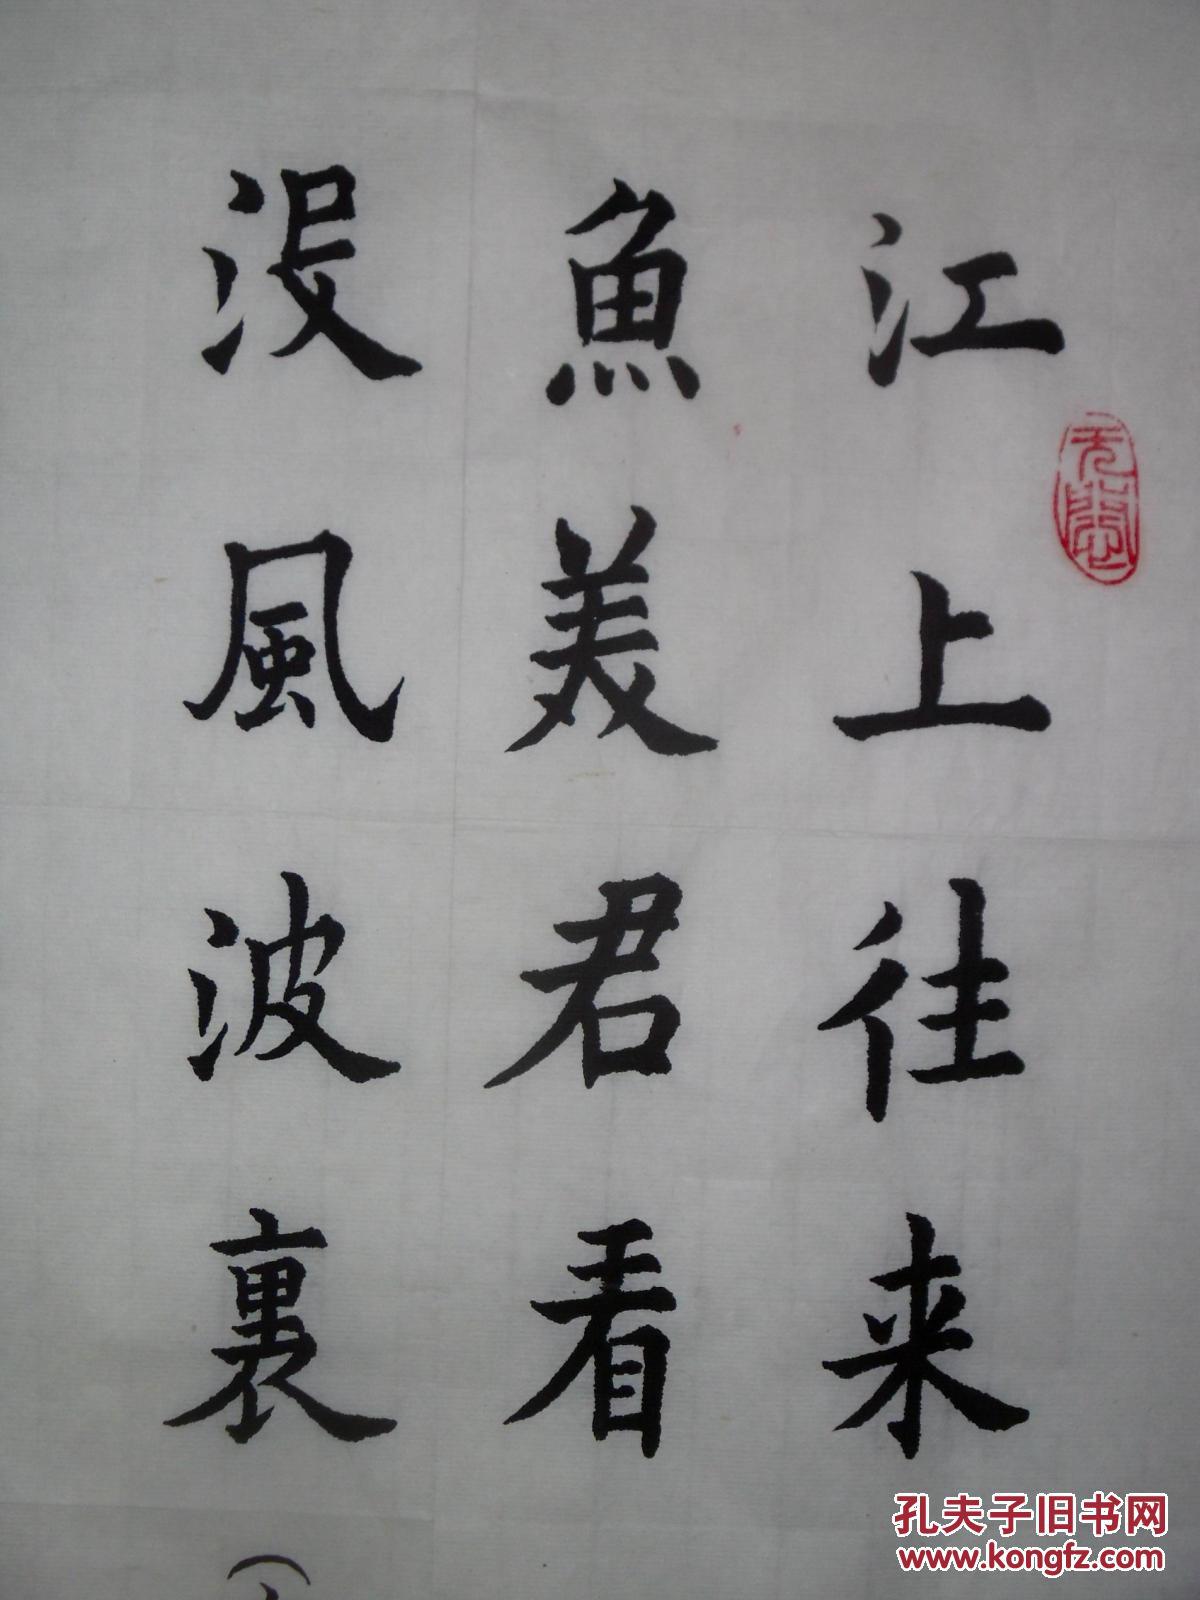 江上往来
魚美君看
没風波裏
孔夫子旧书网
www.kongfz.com